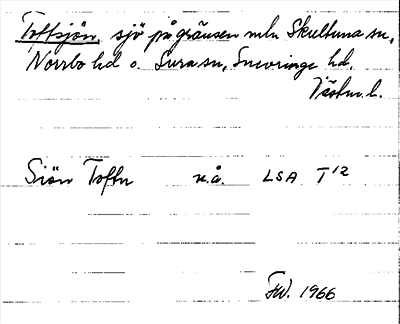 Toftsjön sjö på gränsen mln Skultuna sn,
Norrbo hd o. Sura sn, Snevringe hd,
Västm. l.
Siön Toftn u.å. LSA T12
FW. 1966